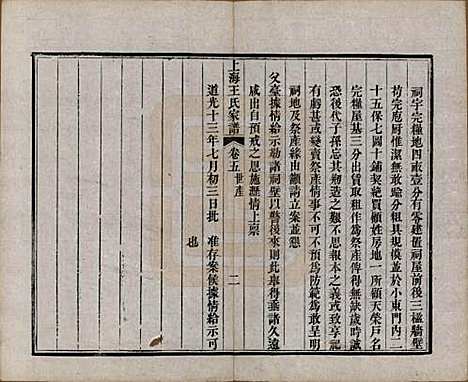 祠宇完糧地四畝壹分有零建置祠屋前後三楹牆壁
苟完庖厨惟潔無敢踰分粗具規模並於小東門內二
十五保七圖十鋪契絕買顧姓房地一所領天榮戶名
完糧屋基三分出賃取租作為祭產俾得無缺歲時誠
恐後代子孫忘其剏造之艱不思報本之義或致享祀
有虧甚或變賣祭產情事不可不預為防範為敢呈明
祠地及祭產緣由籲請立案並懇
父臺據情給示勒諸祠壁以警後來則此舉得垂諸久遠
咸由自預戒之恩施瀝情上稟
上海王氏家譜
卷五世產
二
道光十三年七月初三日批
准存案候據情給示可
也